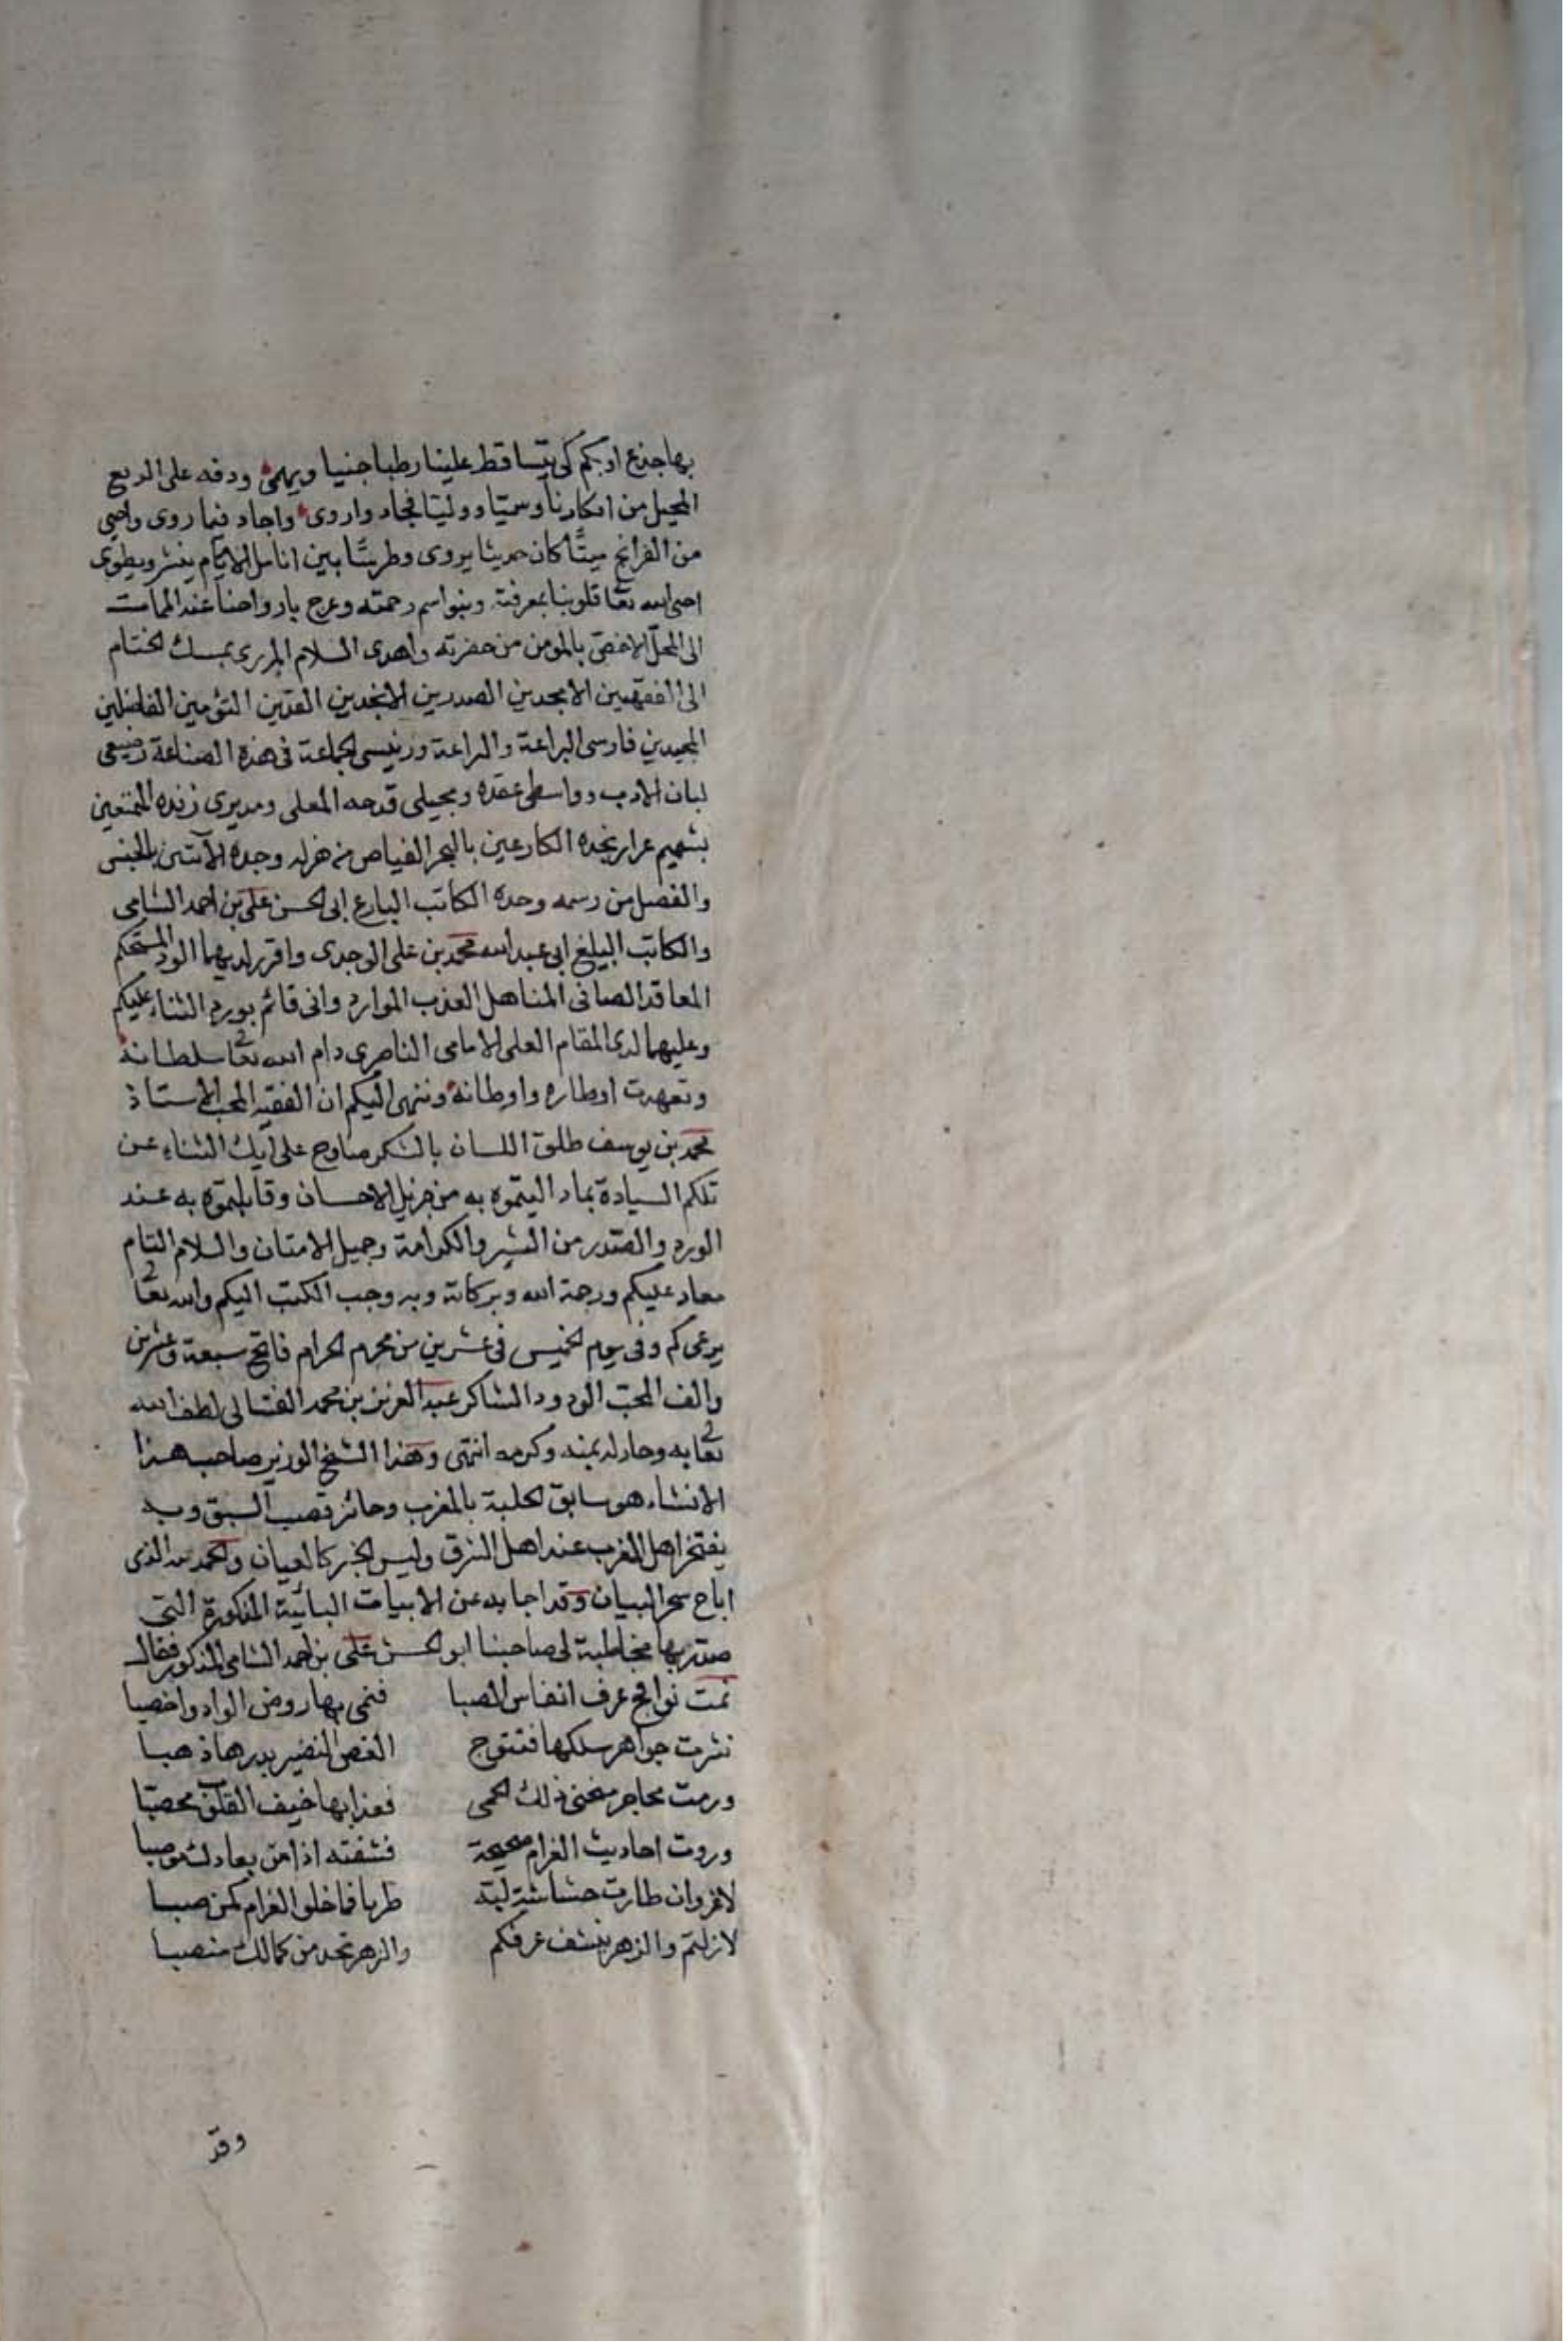 بها جذع ادبكم كي يتساقط علينا رطبا جنيا ويهمي ودقه على الربع
المحيل من افكارنا وسميا ووليا فجاد واروى واجاد فيما روى واحيى
من القرائح ميتًا كان حديثا يروى وطريتًا بين انامل الايام ينشر ويطوى
احيى الله تعا قلوبنا بمعرفته وبنواسم رحمته وعرج بارواحنا عند الممات
الى المحلّ الاخص بالمومن من حضرته واهدى السلام المزرى بمسك الختام
الى الفقهيين الامجدين الصدرين الانجدين الفذين التؤمين الفاضلين
المجيدين فارسى البراعة واليراعة ورئيسى الجماعة فى هذه الصناعة رضيعى
لبان الادب وواسطى عقده ومجيلى قدحه المعلى ومديرى زنده الممتعين
بشميم عرار نجده الكارعين بالبحر الفياض من هزله وجده الآتين بالجنس
والفصل من رسمه وحده الكاتب البارع ابى الحسن على بن احمد الشامى
والكاتب البليغ ابى عبد الله محمد بن على الوجدى واقرر لديهما الود المستحكم
المعاقد الصافى المناهل العذب الموارد وانى قائم بورد الثناء عليكم
وعليهما لدى المقام العلى الامامى الناصرى دام الله تعا سلطانه
وتعهدت اوطاره واوطانه وننهى اليكم ان الفقيه المحب الاستاذ
محمد بن يوسف طلق اللسان بالشكر صادح على ايك الثناء عن
تلكم السيادة بما اوليتموه به من جزيل الاحسان وقابلتموه به عند
الورد والصّدر من البشر والكرامة وجميل الامتنان والسلام التام
معاد عليكم ورحمة الله وبركاته وبه وجب الكتب اليكم والله تعا
يرعى كم وفى يوم الخميس فى عشرين من محرم الحرام فاتح سبعة وعشرين
والف المحب الودود الشاكر عبد العزيز بن محمد الفشتالى لطف الله
تعا به وحار له بمنه وكرمه انتهى وهذا الشيخ الوزير صاحب هذا
الانشاء هو سابق الحلبة بالمغرب وحائز قصب السبق وبه
يفتخر اهل المغرب عند اهل الشرق وليس الخبر كالعيان والحمد لله الذى
اباح سحر البيان وقد اجابه عن الابيات البائية المذكورة التى
صدر بها مخاطبة لى صاحبنا ابو الحسن على بن احمد الشامى المذكور فقال
نمت نوافح عرف انفاس الصبا فنمى بها روض الواد واخصبا
نثرت جواهر سلكها فتتوج الغصن النضير بدرها ذهبا
ورمت محاجر منحنى ذلك الحمى فغدا بها خيف القلوب محصبّا
وروت احاديث الغرام صحيحة فشفته اذ امن بعادك موصبا
لا غروان طارت حشاشة لبّه طربا فما خلو الغرام كمن صبا
لازلتم والزهر ينشف عرفكم والزهر تحد من كمالك منصبا
وقد